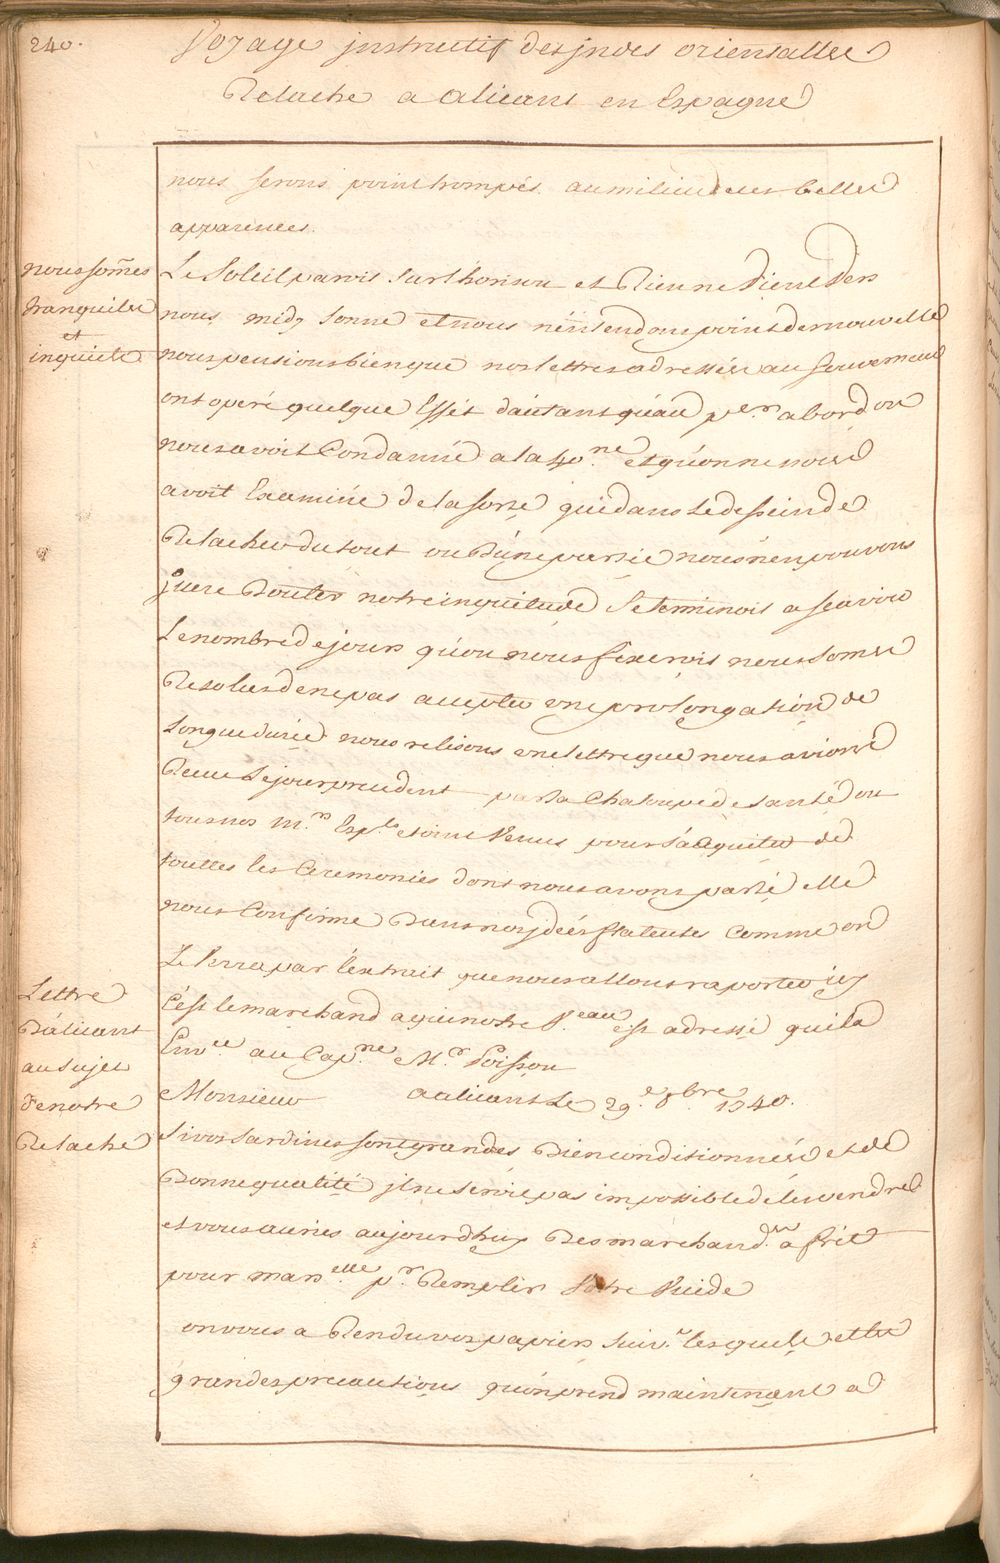 240.
Voyage jnstructif des jndes orientalles
Relache a alicant en Espagne
nous serons point trompés au milieu de ces belles
apparences.
nous som̃es
tranquiles
et
inquiets
Le Soleil parois sur l'horison et Rien ne Vient Vers
nous midy sonne et nous n'entendons point de nouvelle
nous pensions bien que nos lettres adressées au Gouverneur
ont operé quelque Effét d'autant qu'au p.er abord on
nous avoit Condamné a la 40.ne et qu'on ne nous
avoit Examinée de la sorte que dans le dessein de
Relacher du tout ou d'une partie nous n'en pouvons
guere Douter notre inquietude se terminois a sçavoir
Le nombre de jours qu'on nous fixerois nous somes
Resolus de ne pas accepter une prolongation de
Longue durée nous relisons une lettre que nous avions
Receue le jour precedent par la Chaloupe de santé ou
tous nos M.rs Esp.ls etoint Venus pour s'acquiter de
touttes les Ceremonies dont nous avons parlé elle
nous Confirme Dans nos jdées flateuses Comme on
Le Verra par l'extrait que nous allons raporter icy
C'est le marchand a qui notre V.eau est adressé qui l'a
Env.ée au Cap.ne M.r Poisson
Lettre
D'alicant
au sujet
de notre
Relache
Monsieur a alicant Le 29.e 8.bre 1740.
Si vos sardines sont grandes Bien conditionnées et de
Bonne qualité jl ne seroit pas impossible de les vendre
et vous auriés aujourdhuy Des marchand.ses a frét
pour mars.elle p.r Remplir Votre Vuide
on vous a Rendu vos papiers suiv.t lesquels et les
grandes precautions qu'on prend maintenant a